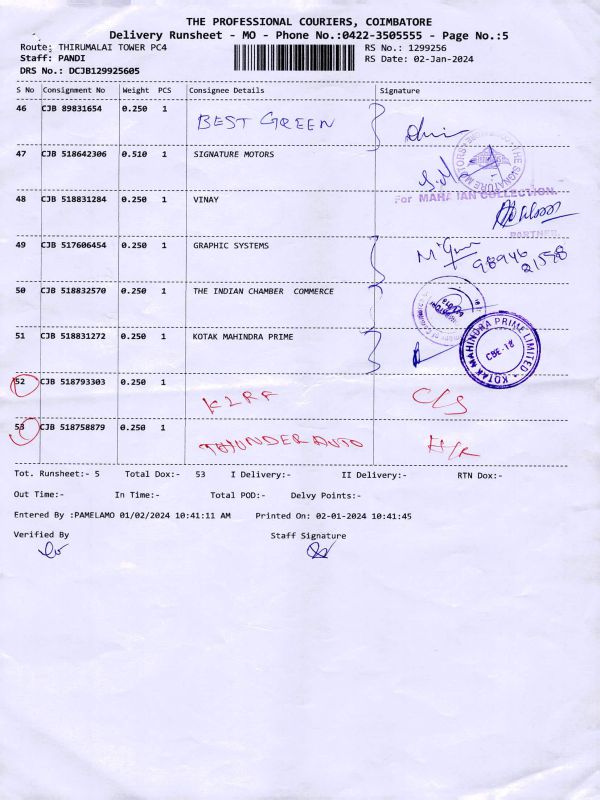 THE PROFESSIONAL COURIERS, COIMBATORE
Delivery Runsheet - MO - Phone No.:0422-3505555 - Page No.:5
Route: THIRUMALAI TOWER PC4 RS No.: 1299256
Staff: PANDI RS Date: 02-Jan-2024
DRS No.: DCJB129925605
S No Consignment No Weight PCS Consignee Details Signature
46 CJB 89831654 0.250 1 BEST GREEN
47 CJB 518642306 0.510 1 SIGNATURE MOTORS
THE SIGNATURE MOTORS
48 CJB 518831284 0.250 1 VINAY
For MAHAJAN COLLECTION.
PARTNER
49 CJB 517606454 0.250 1 GRAPHIC SYSTEMS
98946
21598
50 CJB 518832570 0.250 1 THE INDIAN CHAMBER COMMERCE
51 CJB 518831272 0.250 1 KOTAK MAHINDRA PRIME
KOTAK MAHINDRA PRIME LIMITED
CBE-18
52 CJB 518793303 0.250 1 KLRF C/S
53 CJB 518758879 0.250 1 THUNDER AUTO
Tot. Runsheet:- 5 Total Dox:- 53 I Delivery:- II Delivery:- RTN Dox:-
Out Time:- In Time:- Total POD:- Delvy Points:-
Entered By :PAMELAMO 01/02/2024 10:41:11 AM Printed On: 02-01-2024 10:41:45
Verified By Staff Signature